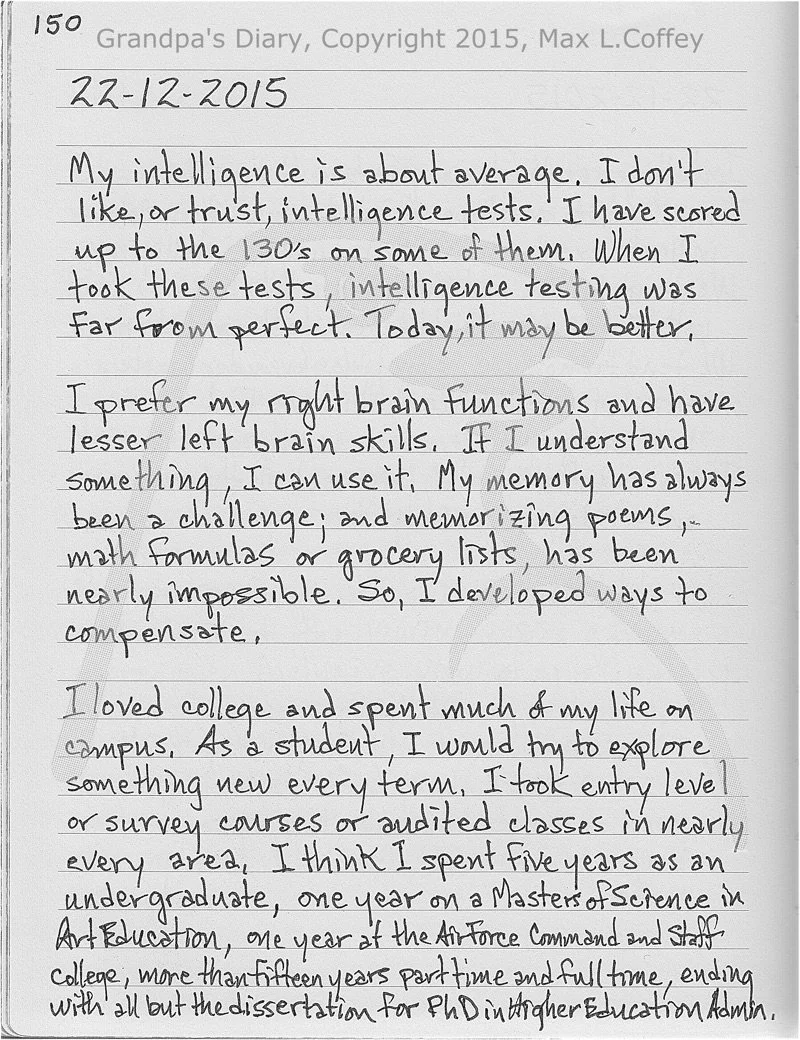 150
Grandpa's Diary, Copyright 2015, Max L.Coffey
22-12-2015
My intelligence is about average. I don't
like, or trust, intelligence tests. I have scored
up to the 130's on some of them. When I
took these tests, intelligence testing was
far from perfect. Today, it may be better.
I prefer my right brain functions and have
lesser left brain skills. If I understand
something, I can use it. My memory has always
been a challenge; and memorizing poems,
math formulas or grocery lists, has been
nearly impossible. So, I developed ways to
compensate.
I loved college and spent much of my life on
campus. As a student, I would try to explore
something new every term. I took entry level
or survey courses or audited classes in nearly
every area. I think I spent five years as an
undergraduate, one year on a Masters of Science in
Art Education, one year at the Air Force Command and Staff
College, more than fifteen years part time and full time, ending
with all but the dissertation for PhD in Higher Education Admin.